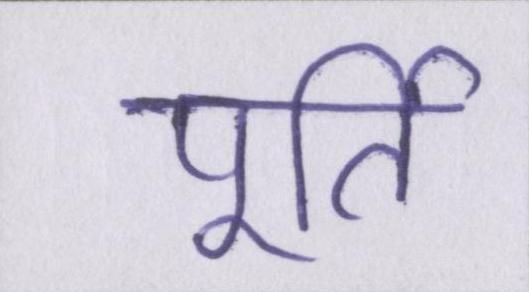 पूर्ति